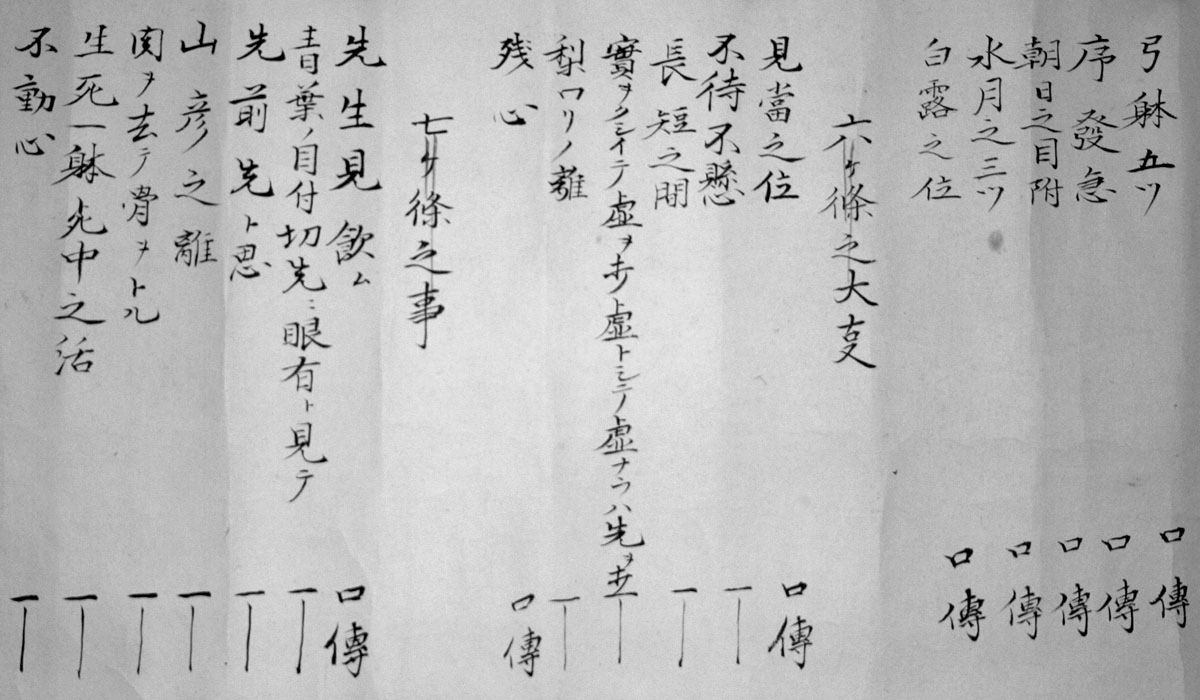 弓躰五ツ 口傳
序發急 口傳
朝日之目附 口傳
水月之三ツ 口傳
白露之位 口傳
六ケ條之大事
見當之位 口傳
不待不懸 一
長短之間 一
實ヲクシイテ虚ヲ打虚トシテノ虚ナラハ先ヲ打 一
梨ワリノ離 一
残心 口傳
七ケ條之事
先生見飲ム 口傳
青葉ノ目付切先ニ眼有ト見テ 一
先前先ト思 一
山彦之離 一
関ヲ去テ骨ヲトル 一
生死一躰死中之活 一
不動心 一